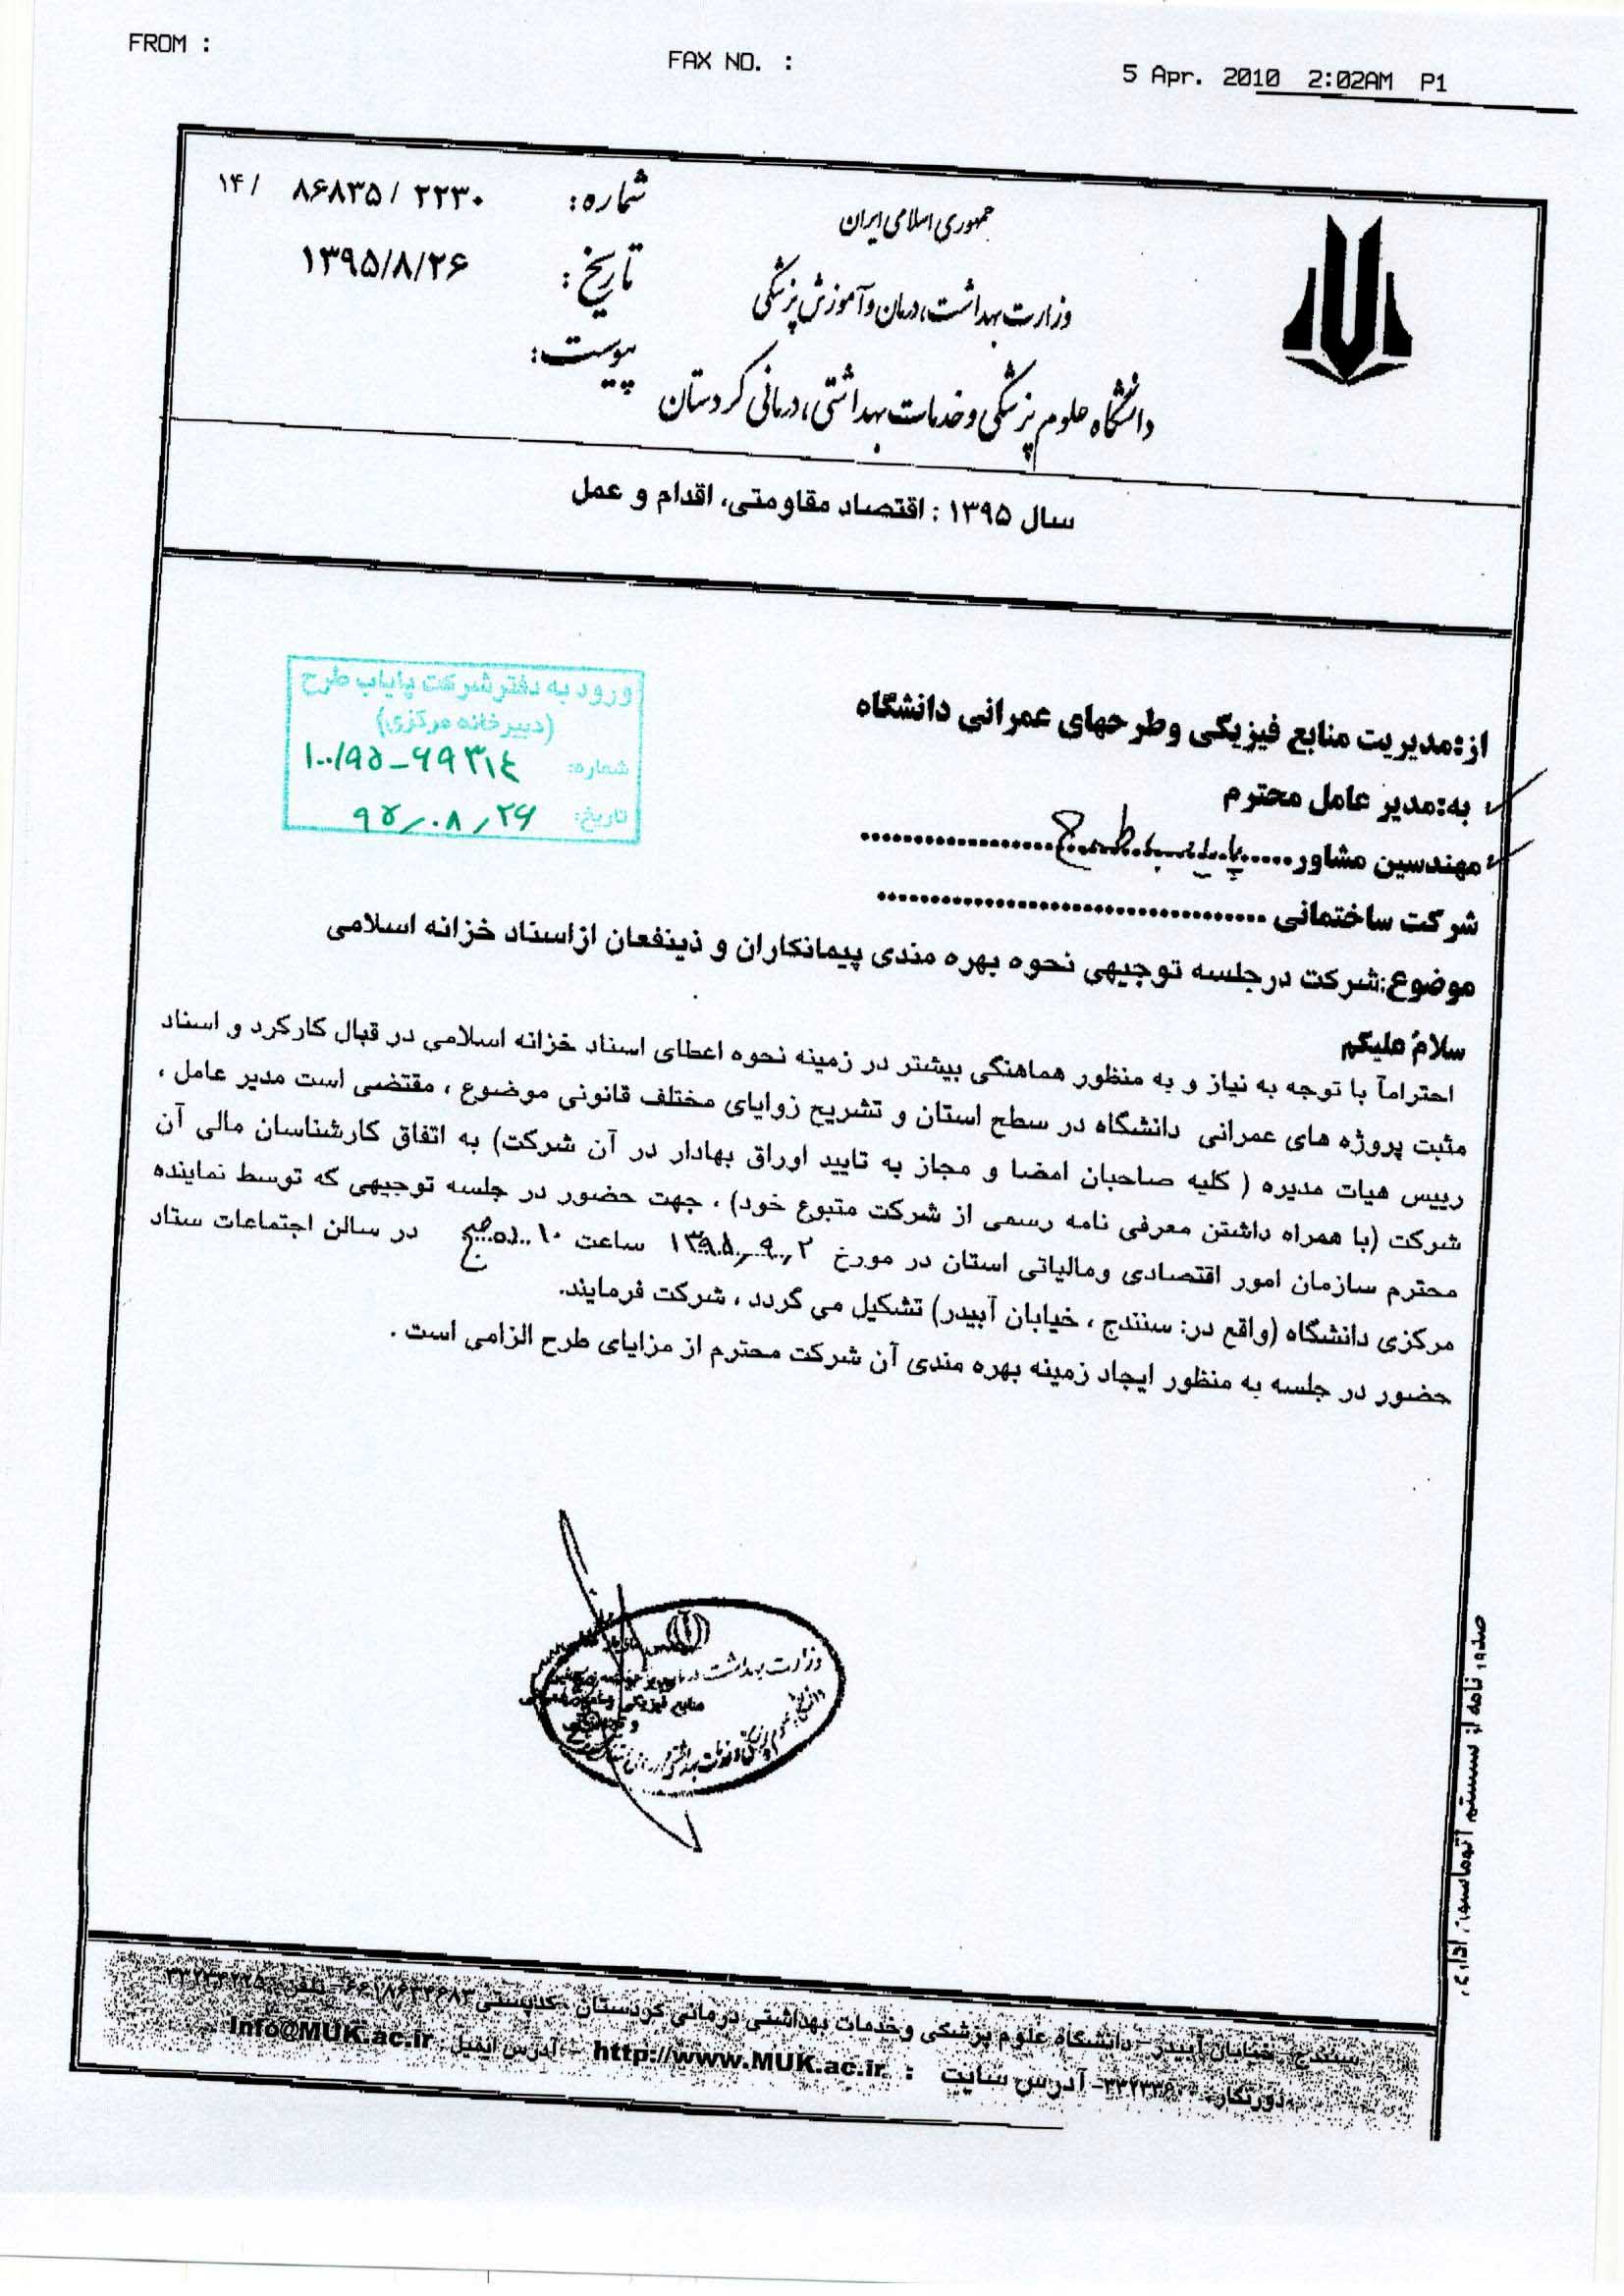 FROM :
FAX NO. :
5 Apr. 2010 2:02AM P1
جمهوری اسلامی ایران
وزارت بهداشت، درمان و آموزش پزشکی
دانشگاه علوم پزشکی و خدمات بهداشتی، درمانی کردستان
شماره: ۱۴/ ۸۶۸۳۵/ ۲۲۳۰
تاریخ: ۱۳۹۵/۸/۲۶
پیوست:
سال ۱۳۹۵ : اقتصاد مقاومتی، اقدام و عمل
ورود به دفتر شرکت پایاب طرح
(دبیرخانه مرکزی)
شماره: ۱۰۰/۹۵-۶۹۳۱٤
تاریخ: ۹۵/۰۸/۲۶
از:مدیریت منابع فیزیکی وطرحهای عمرانی دانشگاه
به:مدیر عامل محترم
مهندسین مشاور.....پایاب طرح..................
شرکت ساختمانی ....................................
موضوع:شرکت درجلسه توجیهی نحوه بهره مندی پیمانکاران و ذینفعان ازاسناد خزانه اسلامی
سلامُ علیکم
احتراماً با توجه به نیاز و به منظور هماهنگی بیشتر در زمینه نحوه اعطای اسناد خزانه اسلامی در قبال کارکرد و اسناد
مثبت پروژه های عمرانی دانشگاه در سطح استان و تشریح زوایای مختلف قانونی موضوع ، مقتضی است مدیر عامل ،
رییس هیات مدیره ( کلیه صاحبان امضا و مجاز به تایید اوراق بهادار در آن شرکت) به اتفاق کارشناسان مالی آن
شرکت (با همراه داشتن معرفی نامه رسمی از شرکت متبوع خود) ، جهت حضور در جلسه توجیهی که توسط نماینده
محترم سازمان امور اقتصادی ومالیاتی استان در مورخ ۱۳۹۵/۹/۲ ساعت ۱۰ صبح در سالن اجتماعات ستاد
مرکزی دانشگاه (واقع در: سنندج ، خیابان آبیدر) تشکیل می گردد ، شرکت فرمایند.
حضور در جلسه به منظور ایجاد زمینه بهره مندی آن شرکت محترم از مزایای طرح الزامی است .
وزارت بهداشت
منابع فیزیکی و
صدور نامه از سیستم اتوماسیون اداری
سنندج- خیابان آبیدر - دانشگاه علوم پزشکی وخدمات بهداشتی درمانی کردستان - کدپستی - تلفن
دورنگار - آدرس سایت : http://www.MUK.ac.ir - آدرس ایمیل : Info@MUK.ac.ir